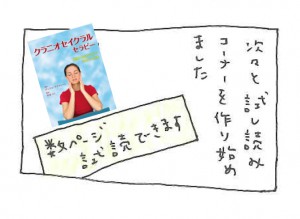 次々と試し読み
コーナーを作り始め
ました
クラニオセイクラル
セラピー
数ページ
試読できます